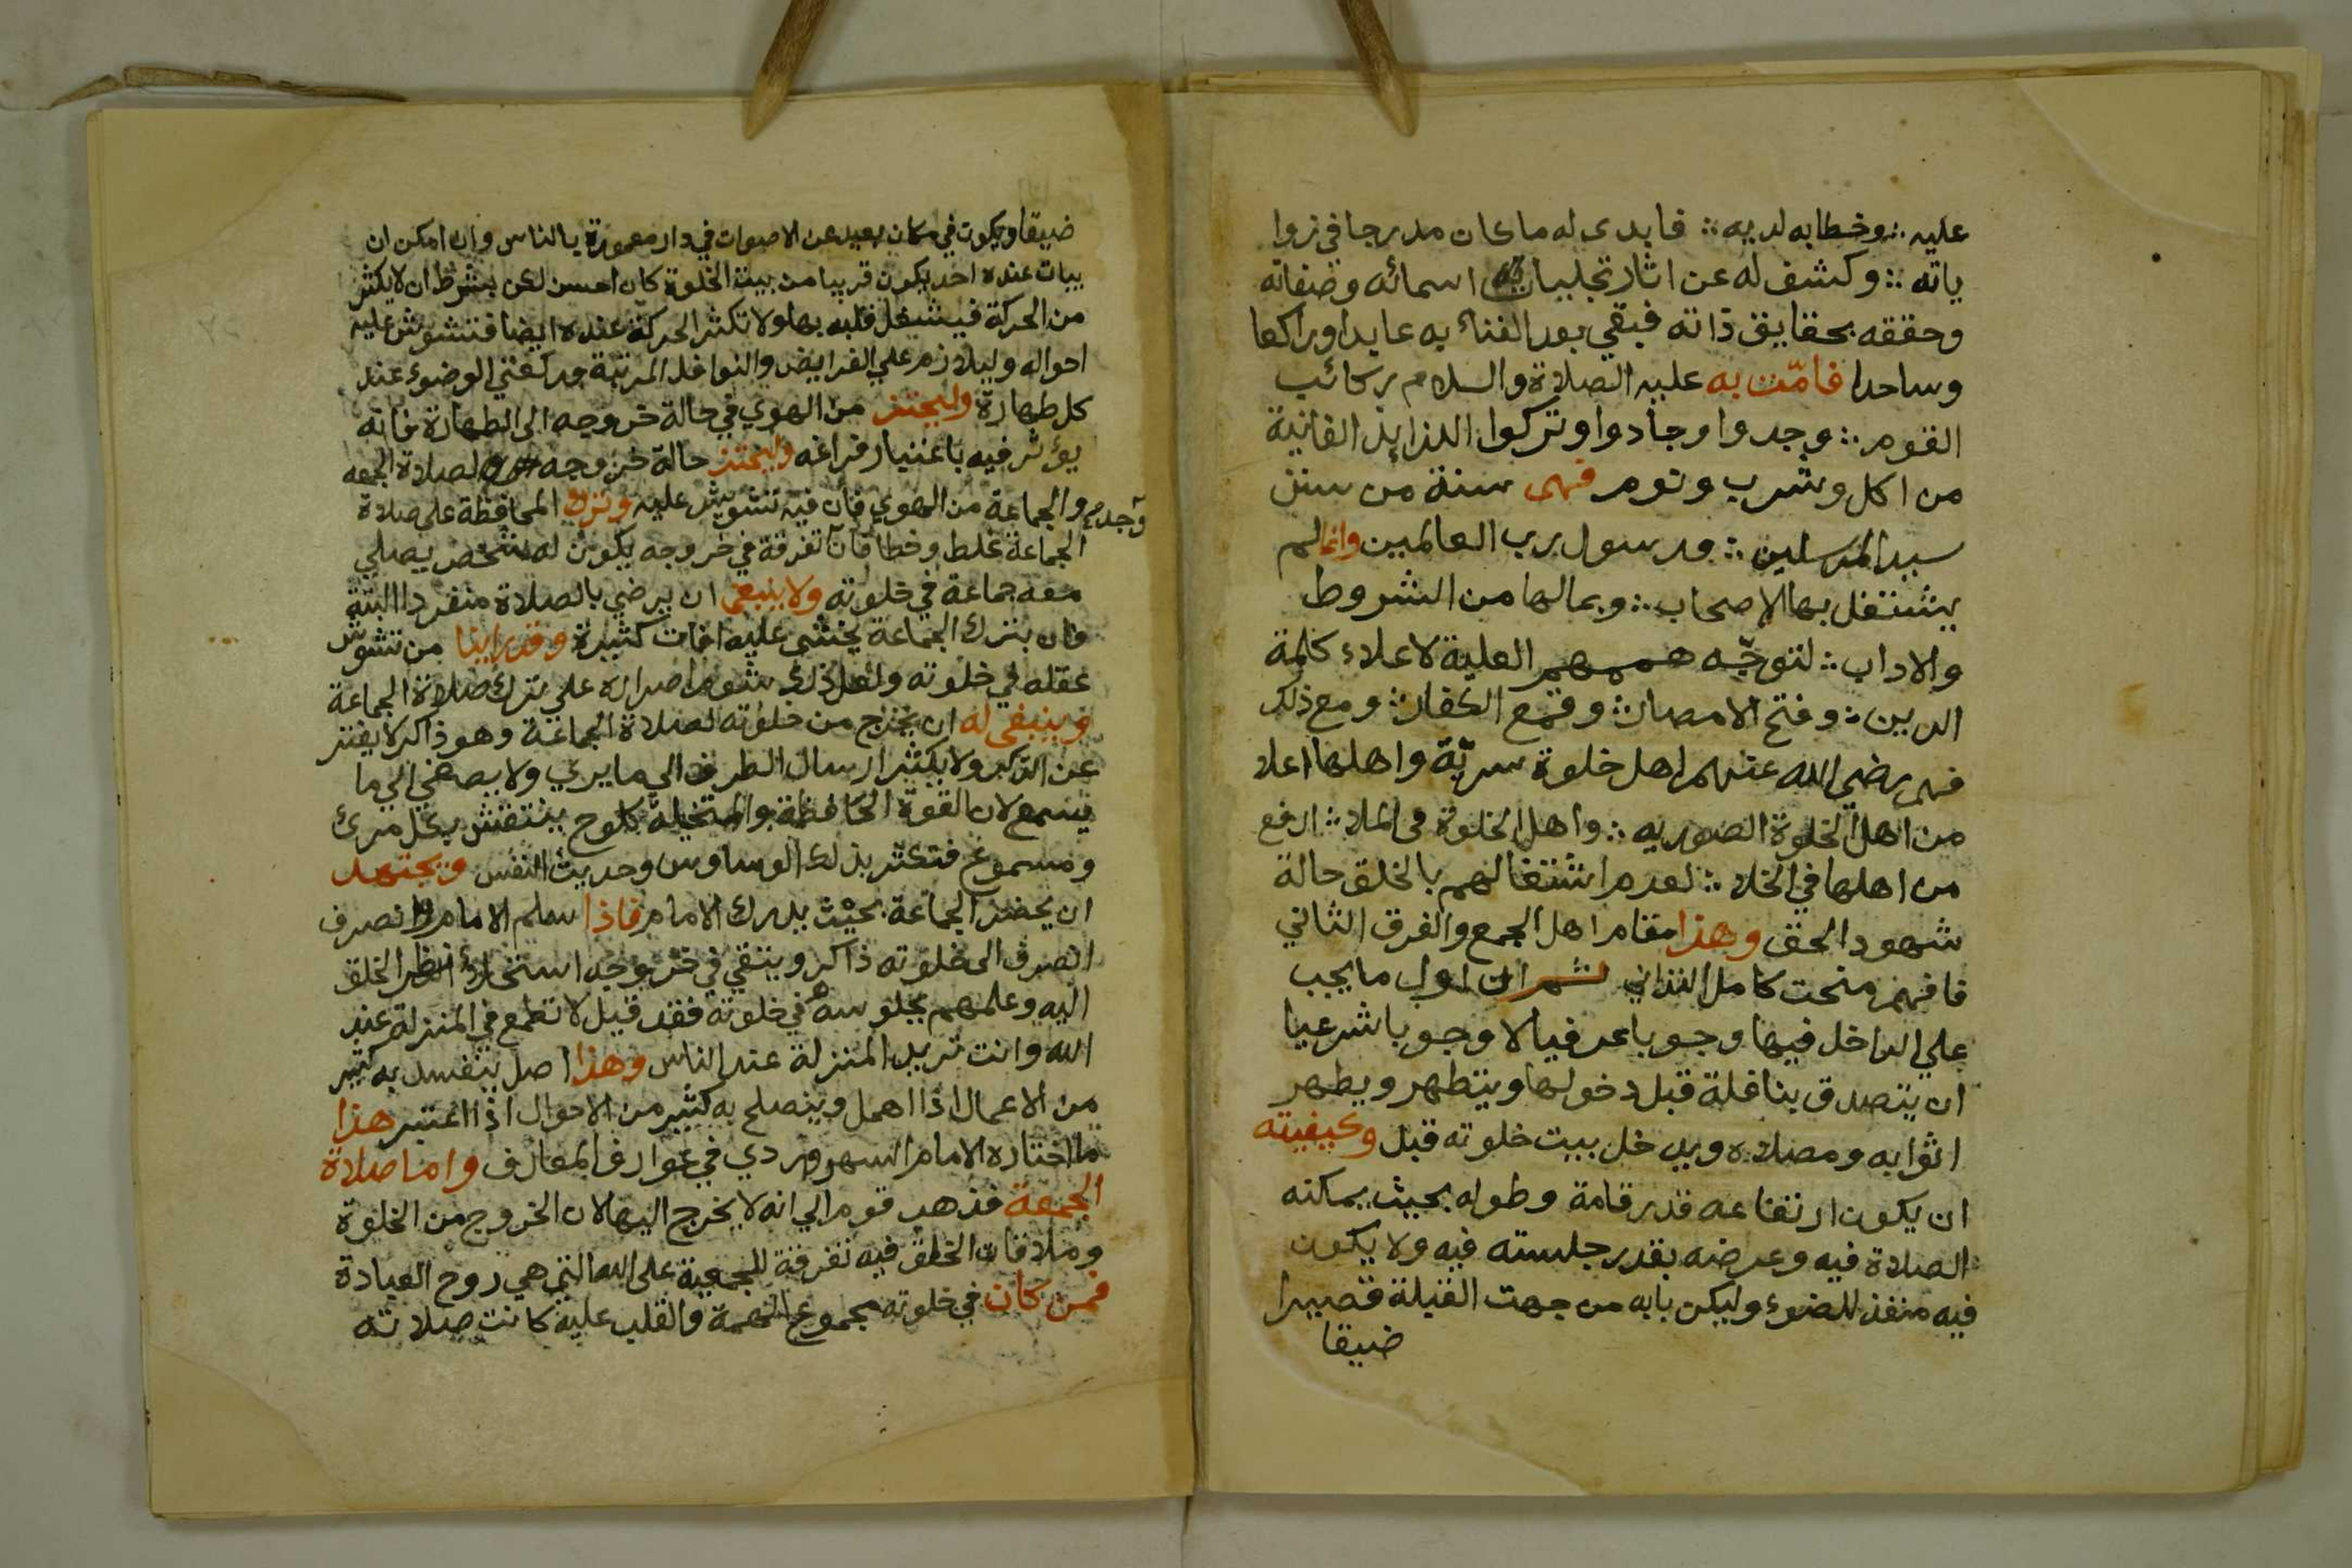 عليه ∴ وخطابه لديه ∴ فابدى له ما كان مدرجا في زوا
ياته ∴ وكشف له عن اثار تجليات اسمائه وصفاته
وحققه بحقايق ذاته فبقي بعد الفناء به عابدا وراكعا
وساجدا فامّت به عليه الصلاة والسلام ركائب
القوم ∴ وجدوا وجادوا وتركوا اللذايذ الفانية
من اكل وشرب ونوم فهى سنة من سنن
سيد المرسلين ∴ ورسول رب العالمين وانما لم
يشتغل بها الاصحاب ∴ وبمالها من الشروط
والاداب ∴ لتوجّه هممهم العلية لاعلاء كلمة
الدين ∴ وفتح الامصار ∴ وقمع الكفار ∴ ومع ذلك
فهم رضي الله عنهم اهل خلوة سريّة واهلها اعلا
من اهل الخلوة الصوريه ∴ واهل الخلوة فى الملا ∴ ارفع
من اهلها في الخلا ∴ لعدم اشتغالهم بالخلق حالة
شهود الحق وهذا مقام اهل الجمع والفرق الثاني
فافهم منحت كامل التداني ثم ان اول ما يجب
علي الداخل فيها وجوبا عرفيا لا وجوبا شرعيا
ان يتصدق بنافلة قبل دخولها ويتطهر ويطهر
اثوابه ومصلاه ويدخل بيت خلوته قبل وكيفيته
ان يكون ارتفاعه قدر قامة وطوله بحيث يمكنه
الصلاة فيه وعرضه بقدر جلسته فيه ولا يكون
فيه منفذ للضوء وليكن بابه من جهت القبلة قصيرا
ضيقا
ضيقا ويكون في مكان بعيد عن الاصوات في دار معمورة بالناس وان امكن ان
يبات عنده احد يكون قريبا من بيت الخلوة كان احسن لكن بشرط ان لا يكثر
من الحركة فيشغل قلبه بها ولا تكثر الحركة عنده ايضا فتشوش عليه
احواله وليلازم علي الفرايض والنوافل المرتبة وركعتي الوضوء عند
كل طهارة وليحترز من الهوي في حالة خروجه الى الطهارة فانه
يؤثر فيه باعتبار فراغه وليحترز حالة خروجه لصلاة الجمعه
والجماعة من الهوي فان فيه تشويش عليه وترك المحافظة على صلاة
الجماعة غلط وخطا فان تفرقة في خروجه يكون له شخص يصلي
وجد
معه جماعة في خلوته ولا ينبغي ان يرضي بالصلاة منفردا البتة
فان بترك الجماعة يخشى عليه افات كثيرة وقد راينا من تشوش
عقله في خلوته ولعل ذلك شوم اصراره علي ترك صلاة الجماعة
وينبغي له ان يخرج من خلوته لصلاة الجماعة وهو ذاكر لا يفتر
عن الذكر ولا يكثر ارسال الطرف الي ما يري ولا يصغي الي ما
يسمع لان القوة الحافظة والمتخيلة كلوح ينتقش بكل مرئ
ومسموع فتكثر بذلك الوساوس وحديث النفس ويجتهد
ان يحضر الجماعة بحيث يدرك الامام فاذا سلم الامام وانصرف
انصرف الى خلوته ذاكر ويتقي في خروجه استجلاء نظر الخلق
اليه وعلمهم بجلوسه في خلوته فقد قيل لا تطمع في المنزلة عند
الله وانت تريد المنزلة عند الناس وهذا اصل ينفسد به كثير
من الاعمال اذا اهمل وينصلح به كثير من الاحوال اذا اعتبر هذا
ما اختاره الامام السهروردي في عوارف المعارف واما صلاة
الجمعة فذهب قوم الي انه لا يخرج اليها لان الخروج من الخلوة
وملاقات الخلق فيه تفرقة للجمعية على الله التي هي روح العبادة
فمن كان في خلوته مجموع الهمة والقلب عليه كانت صلاته